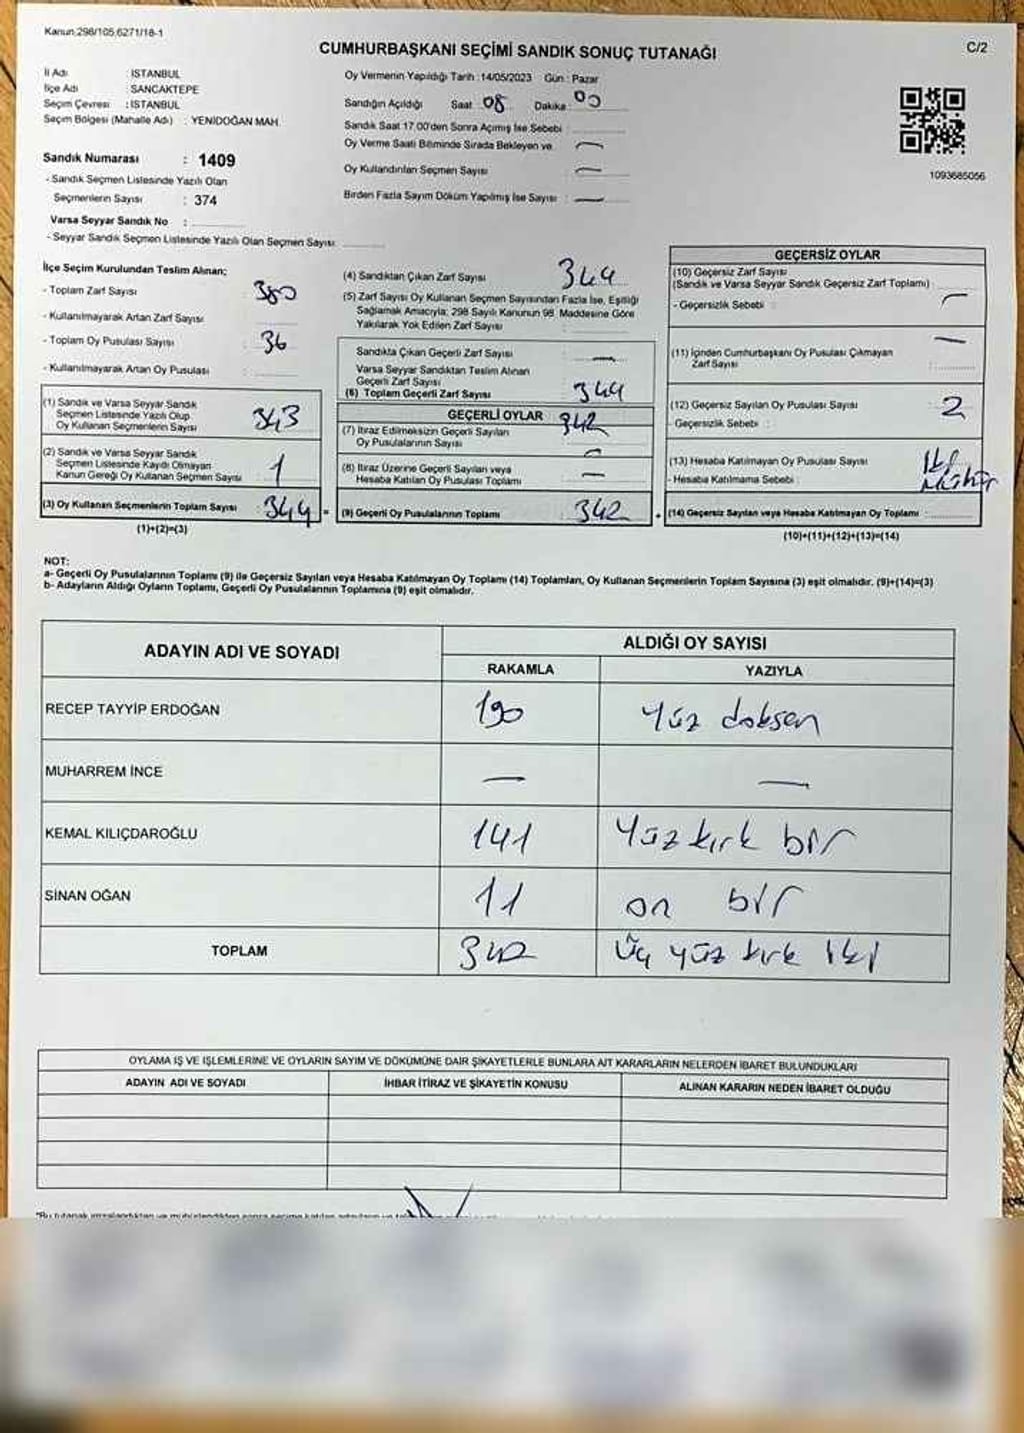 Kanun:298/105,6271/18-1
C/2
CUMHURBAŞKANI SEÇİMİ SANDIK SONUÇ TUTANAĞI
İl Adı : İSTANBUL
İlçe Adı : SANCAKTEPE
Seçim Çevresi : İSTANBUL
Seçim Bölgesi (Mahalle Adı) : YENİDOĞAN MAH.
Sandık Numarası : 1409
- Sandık Seçmen Listesinde Yazılı Olan
Seçmenlerin Sayısı : 374
Varsa Seyyar Sandık No :
- Seyyar Sandık Seçmen Listesinde Yazılı Olan Seçmen Sayısı:
Oy Vermenin Yapıldığı Tarih : 14/05/2023 Gün : Pazar
Sandığın Açıldığı Saat : 08 Dakika : 00
Sandık Saat 17.00'den Sonra Açımış İse Sebebi :
Oy Verme Saati Bitiminde Sırada Bekleyen ve : —
Oy Kullandırılan Seçmen Sayısı : —
Birden Fazla Sayım Döküm Yapılmış İse Sayısı : —
1093685056
İlçe Seçim Kurulundan Teslim Alınan;
- Toplam Zarf Sayısı : 380
- Kullanılmayarak Artan Zarf Sayısı :
- Toplam Oy Pusulası Sayısı : 36
- Kullanılmayarak Artan Oy Pusulası :
(1) Sandık ve Varsa Seyyar Sandık
Seçmen Listesinde Yazılı Olup
Oy Kullanan Seçmenlerin Sayısı : 343
(2) Sandık ve Varsa Seyyar Sandık
Seçmen Listesinde Kaydı Olmayan
Kanun Gereği Oy Kullanan Seçmen Sayısı : 1
(3) Oy Kullanan Seçmenlerin Toplam Sayısı : 344 =
(1)+(2)=(3)
(4) Sandıktan Çıkan Zarf Sayısı : 344
(5) Zarf Sayısı Oy Kullanan Seçmen Sayısından Fazla İse, Eşitliği
Sağlamak Amacıyla; 298 Sayılı Kanunun 98. Maddesine Göre
Yakılarak Yok Edilen Zarf Sayısı :
Sandıkta Çıkan Geçerli Zarf Sayısı : —
Varsa Seyyar Sandıktan Teslim Alınan
Geçerli Zarf Sayısı
(6) Toplam Geçerli Zarf Sayısı : 344
GEÇERLİ OYLAR
(7) İtiraz Edilmeksizin Geçerli Sayılan 342
Oy Pusulalarının Sayısı :
(8) İtiraz Üzerine Geçerli Sayılan veya —
Hesaba Katılan Oy Pusulası Toplamı : —
(9) Geçerli Oy Pusulalarının Toplamı : 342 +
GEÇERSİZ OYLAR
(10) Geçersiz Zarf Sayısı
(Sandık ve Varsa Seyyar Sandık Geçersiz Zarf Toplamı) :
- Geçersizlik Sebebi : —
(11) İçinden Cumhurbaşkanı Oy Pusulası Çıkmayan —
Zarf Sayısı :
(12) Geçersiz Sayılan Oy Pusulası Sayısı : 2
- Geçersizlik Sebebi :
(13) Hesaba Katılmayan Oy Pusulası Sayısı : İki
- Hesaba Katılmama Sebebi : Mühür
(14) Geçersiz Sayılan veya Hesaba Katılmayan Oy Toplamı :
(10)+(11)+(12)+(13)=(14)
NOT:
a- Geçerli Oy Pusulalarının Toplamı (9) ile Geçersiz Sayılan veya Hesaba Katılmayan Oy Toplamı (14) Toplamları, Oy Kullanan Seçmenlerin Toplam Sayısına (3) eşit olmalıdır. (9)+(14)=(3)
b- Adayların Aldığı Oyların Toplamı, Geçerli Oy Pusulalarının Toplamına (9) eşit olmalıdır.
ADAYIN ADI VE SOYADI
ALDIĞI OY SAYISI
RAKAMLA YAZIYLA
RECEP TAYYİP ERDOĞAN 190 Yüz doksan
MUHARREM İNCE — —
KEMAL KILIÇDAROĞLU 141 Yüz kırk bir
SİNAN OĞAN 11 on bir
TOPLAM 342 Üç yüz kırk iki
OYLAMA İŞ VE İŞLEMLERİNE VE OYLARIN SAYIM VE DÖKÜMÜNE DAİR ŞİKAYETLERLE BUNLARA AİT KARARLARIN NELERDEN İBARET BULUNDUKLARI
ADAYIN ADI VE SOYADI İHBAR İTİRAZ VE ŞİKAYETİN KONUSU ALINAN KARARIN NEDEN İBARET OLDUĞU